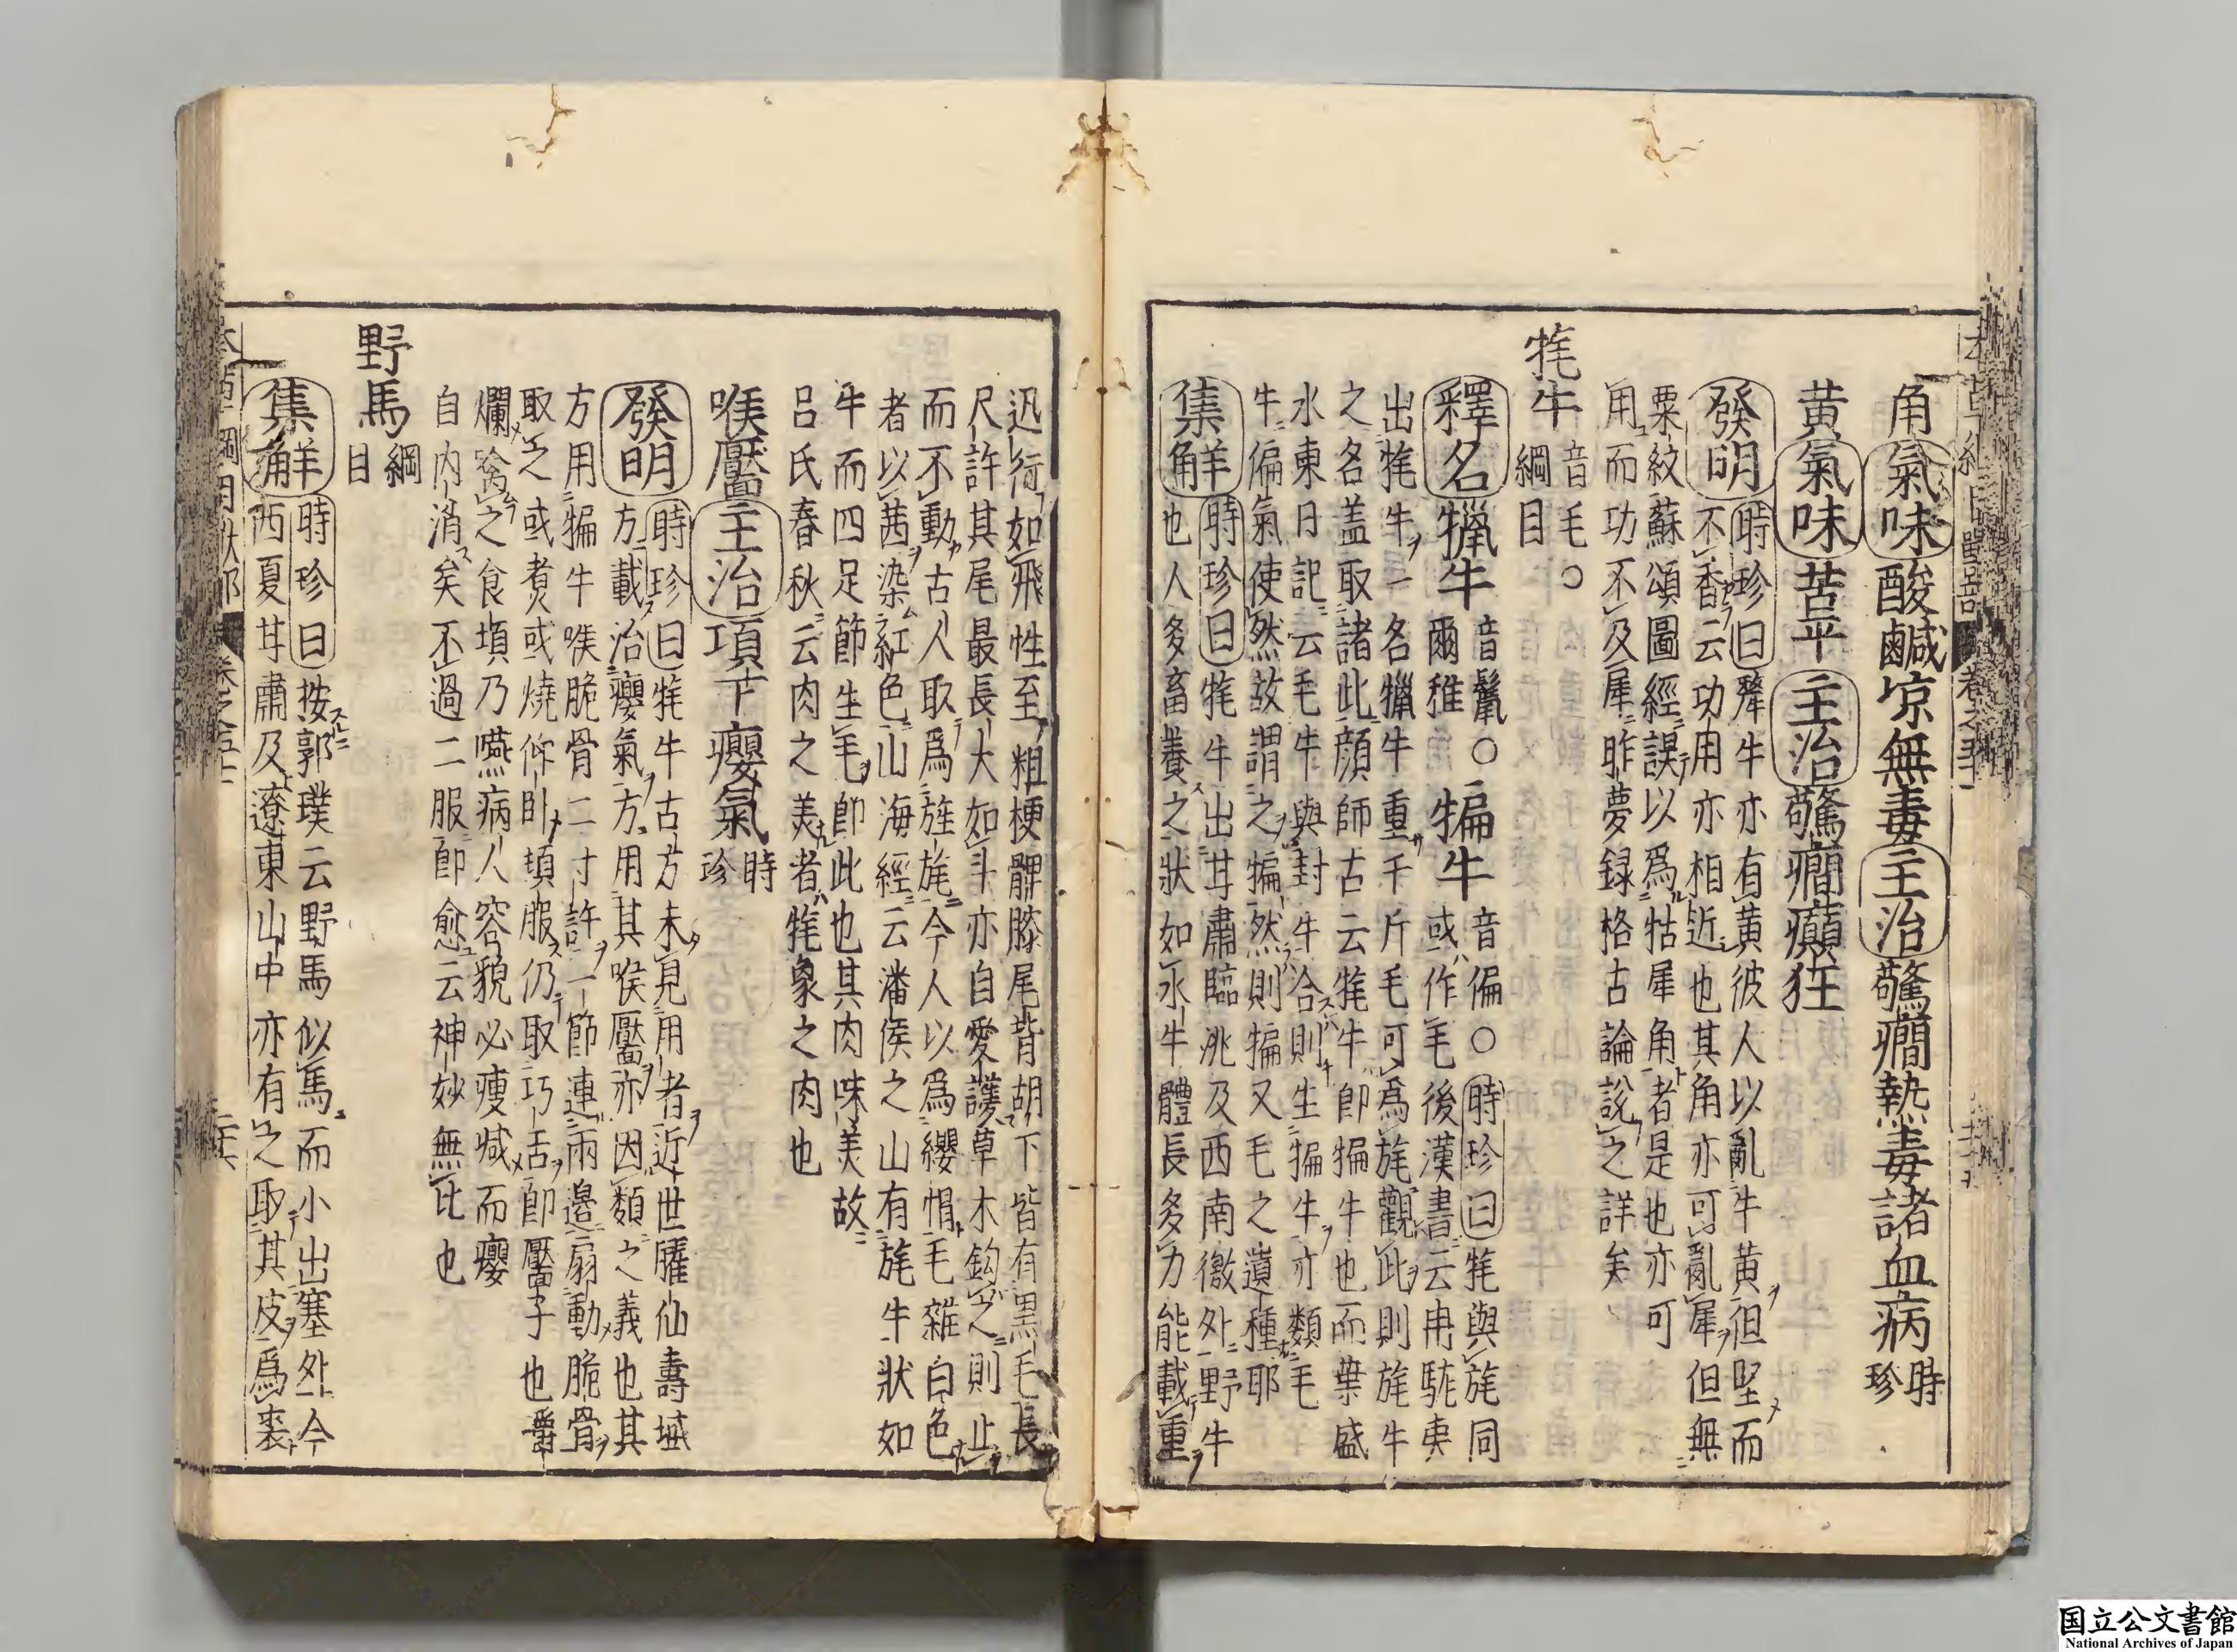 角氣味酸鹹凉無毒主治驚癇熱毒諸血病時珍
黃氣味苦平主治驚癇癲狂
發明時珍曰犛牛亦有黃彼人以亂牛黃但堅而
不香云功用亦相近也其角亦可亂犀但無
粟紋蘇頌圖經誤以爲牯犀角者是也亦可
用而功不及犀昨夢録格古論說之詳矣
牦牛音毛○綱目
釋名犣牛音鬣○爾雅犏牛音偏○時珍曰牦與旄同
或作毛後漢書云冉駹夷
出牦牛一名犣牛重千斤毛可爲旄觀此則旄牛
之名蓋取諸此顔師古云牦牛即犏牛也而葉盛
水東日記云毛牛與封牛合則生犏牛亦類毛
牛偏氣使然故謂之犏然則犏又毛之遺種耶
集觧時珍曰牦牛出甘肅臨洮及西南徼外野牛
也人多畜養之狀如水牛體長多力能載重
迅行如飛性至粗梗髀膝尾背胡下皆有黑毛長
尺許其尾最長大如斗亦自愛護草木鈎之則止
而不動古人取爲旌旄今人以爲纓帽毛雜白色
者以茜染紅色山海經云潘侯之山有旄牛狀如
牛而四足節生毛即此也其肉味美故
呂氏春秋云肉之美者牦象之肉也
喉靨主治項下癭氣時珍
發明時珍曰牦牛古方未見用者近世臞仙壽域
方載治癭氣方用其喉靨亦因類之義也其
方用犏牛喉脆骨二寸許一節連兩邊扇動脆骨
取之或煮或燒仰卧頓服仍取巧舌即靨子也嚼
爛噙之食頃乃嚥病人容貌必瘦減而癭
自內消矣不過二服即愈云神妙無比也
野馬綱目
集觧時珍曰按郭璞云野馬似馬而小出塞外今
西夏甘肅及遼東山中亦有之取其皮爲裘
国立公文書館
National Archives of Japan